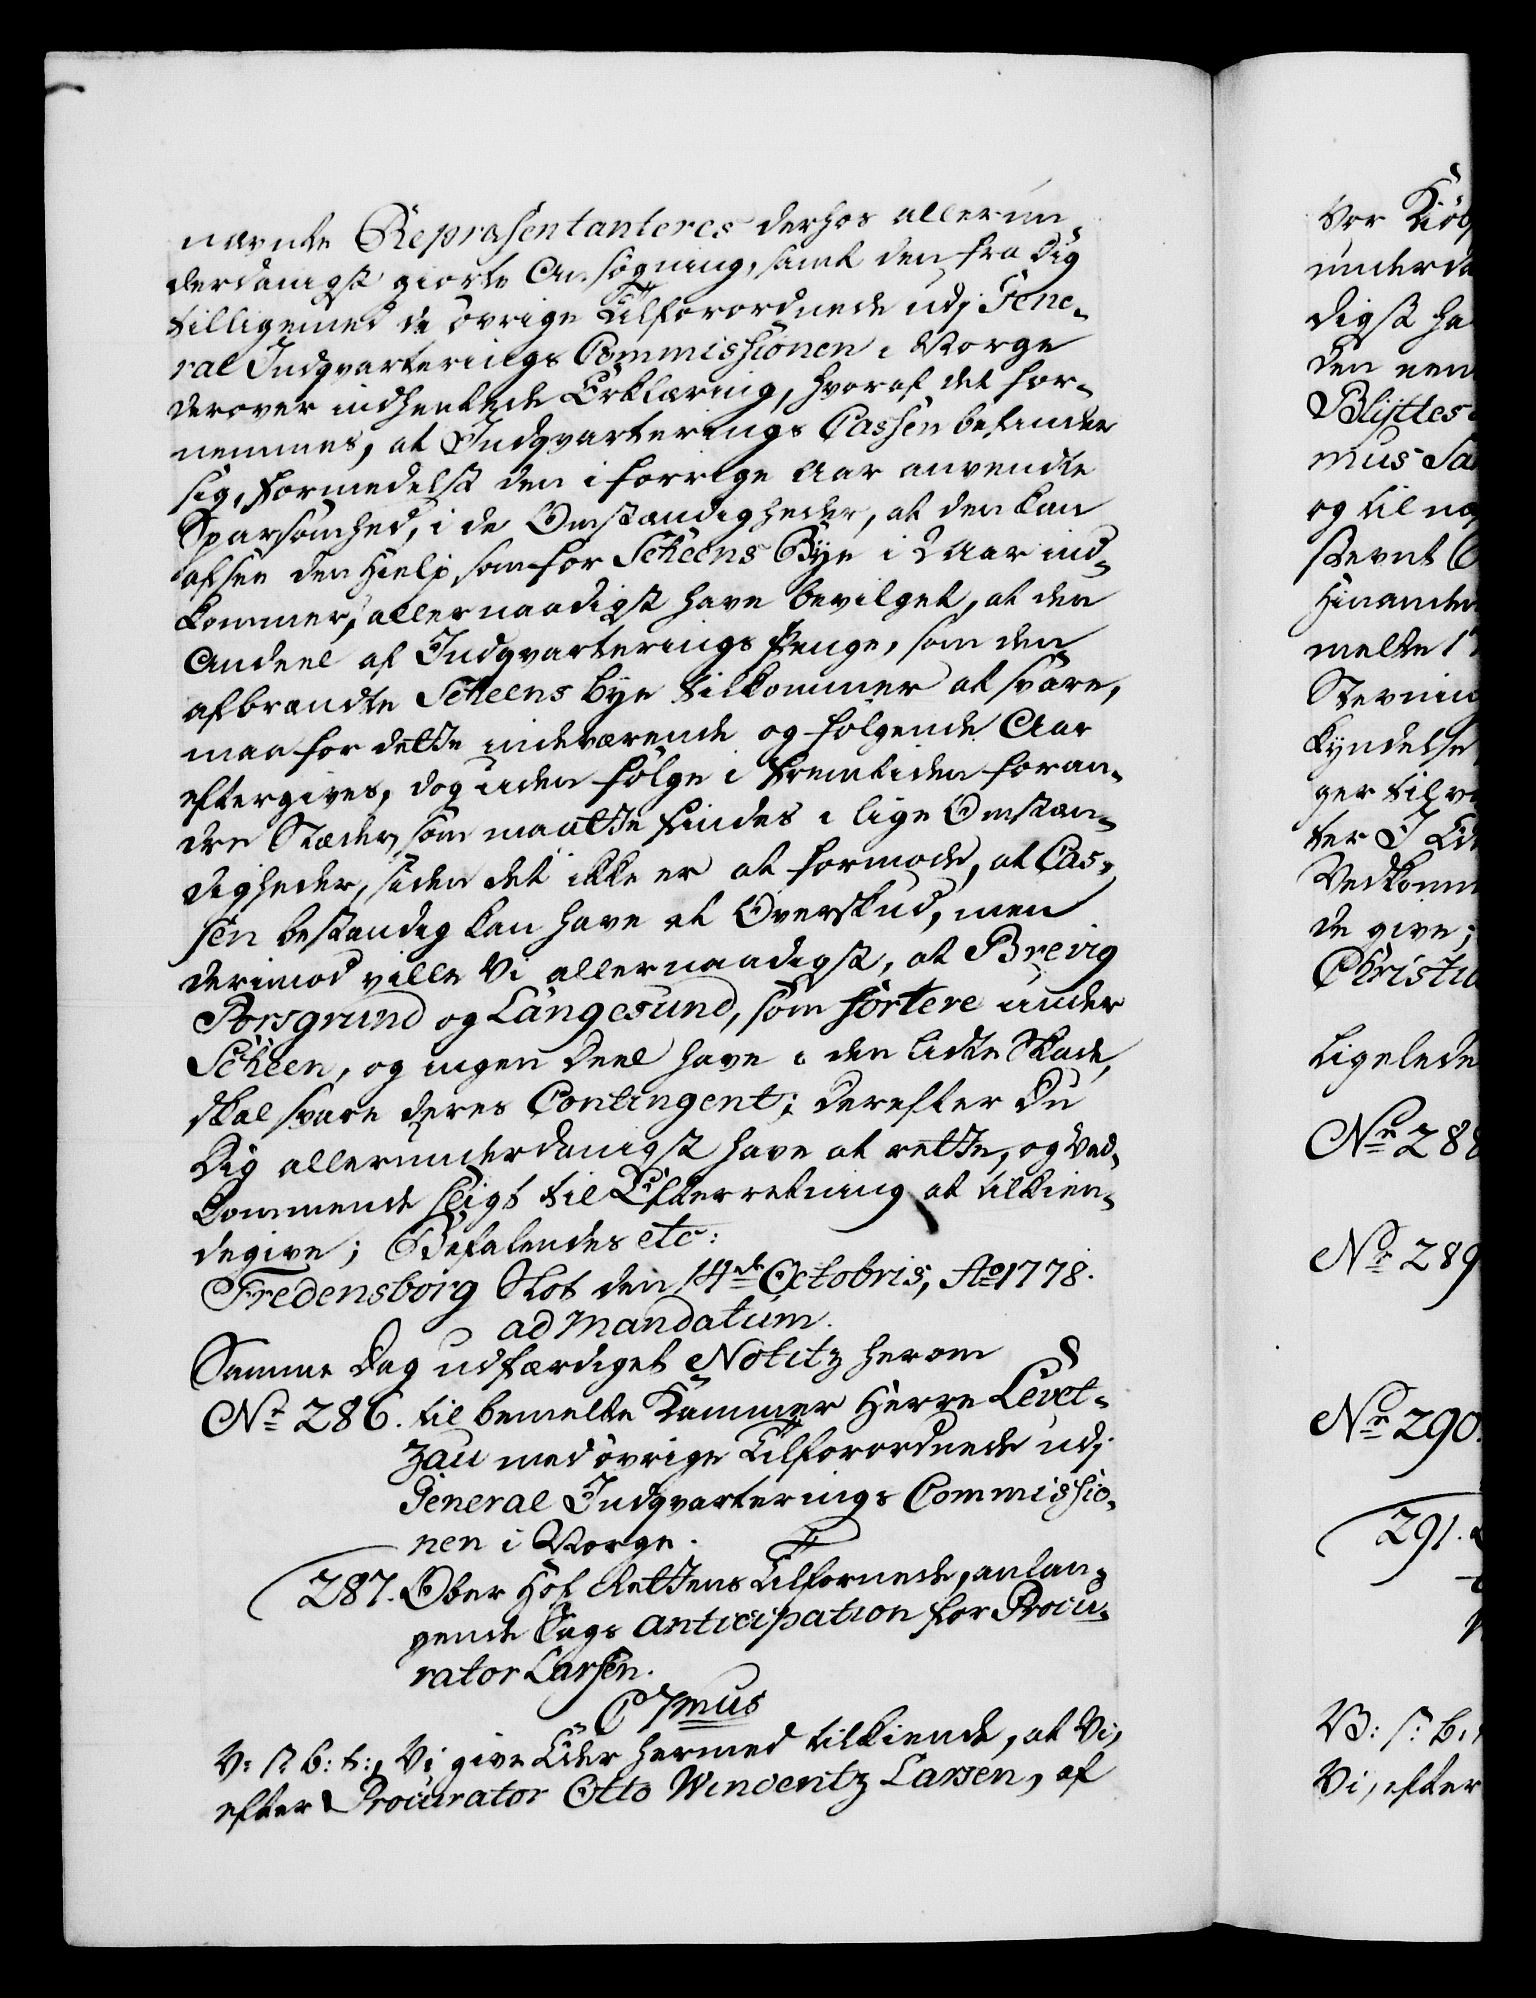 nævnte Repræsentanteres derhos allerun-
derdanigst giorte Ansøgning, samt den fra Dig
tilligemed de øvrige Tilforordnede udj Gene-
ral Indqvarterings Commissionen i Norge
derover indhentede Erklæring, hvoraf det for-
nemmes, at Indqvarterings Cassen befinder
sig, formedelst den i forrige Aar anvendte
Sparsomhed, i de Omstændigheder, at den kan
afsee den Hielp, som for Scheens Bye i 2 Aar ind-
kommer, allernaadigst have bevilget, at den
Andeel af Indqvarterings Penge, som den
afbrændte Scheens Bye tilkommer at svare,
maa for dette indeværende og følgende Aar
eftergives, dog uden Følge i Fremtiden for an-
dre Stæder, som maatte findes i lige Omstæn-
digheder, siden det ikke er at formode, at Cas-
sen bestandig kan have et Overskud, men
derimod ville Vi allernaadigst, at Brevig
Porsgrund og Langesund, som sortere under
Scheen, og ingen Deel have i den lidte Skade,
skal svare deres Contingent; Derefter Du
Dig allerunderdanigst have at rette, og Ved-
kommende sligt til Efterretning at tilkien-
degive; Befalendes etc:
Fredensborg Slot den 14de Octobris, Ao 1778.
ad Mandatum.
Samme Dag udfærdiget Notitz herom
No 286. til bemelte Kammer Herre Levet-
zau med øvrige Tilforordnede udj
General Indqvarterings Commissio-
nen i Norge.
287. Ober Hof Rettens Tilfornede, anlan-
gende Sags anticipation for Procu-
rator Larsen.
C 7mus
V: S: b: t:, Vi give Eder hermed tilkiende, at Vi,
efter Procurator Otto Windentz Larsen, af
Vor Kiøb
underda
digst ha
den nem
Blyttes
mus Sa
og til næ
stevnt
Hinanden
melte 17
Stevnin
kyndelse
ger til
ter I Ed
Vedkomm
de give;
Christia
Ligelede
No 288
No 289
No 290.
291.
V: S: b:
Vi, efter